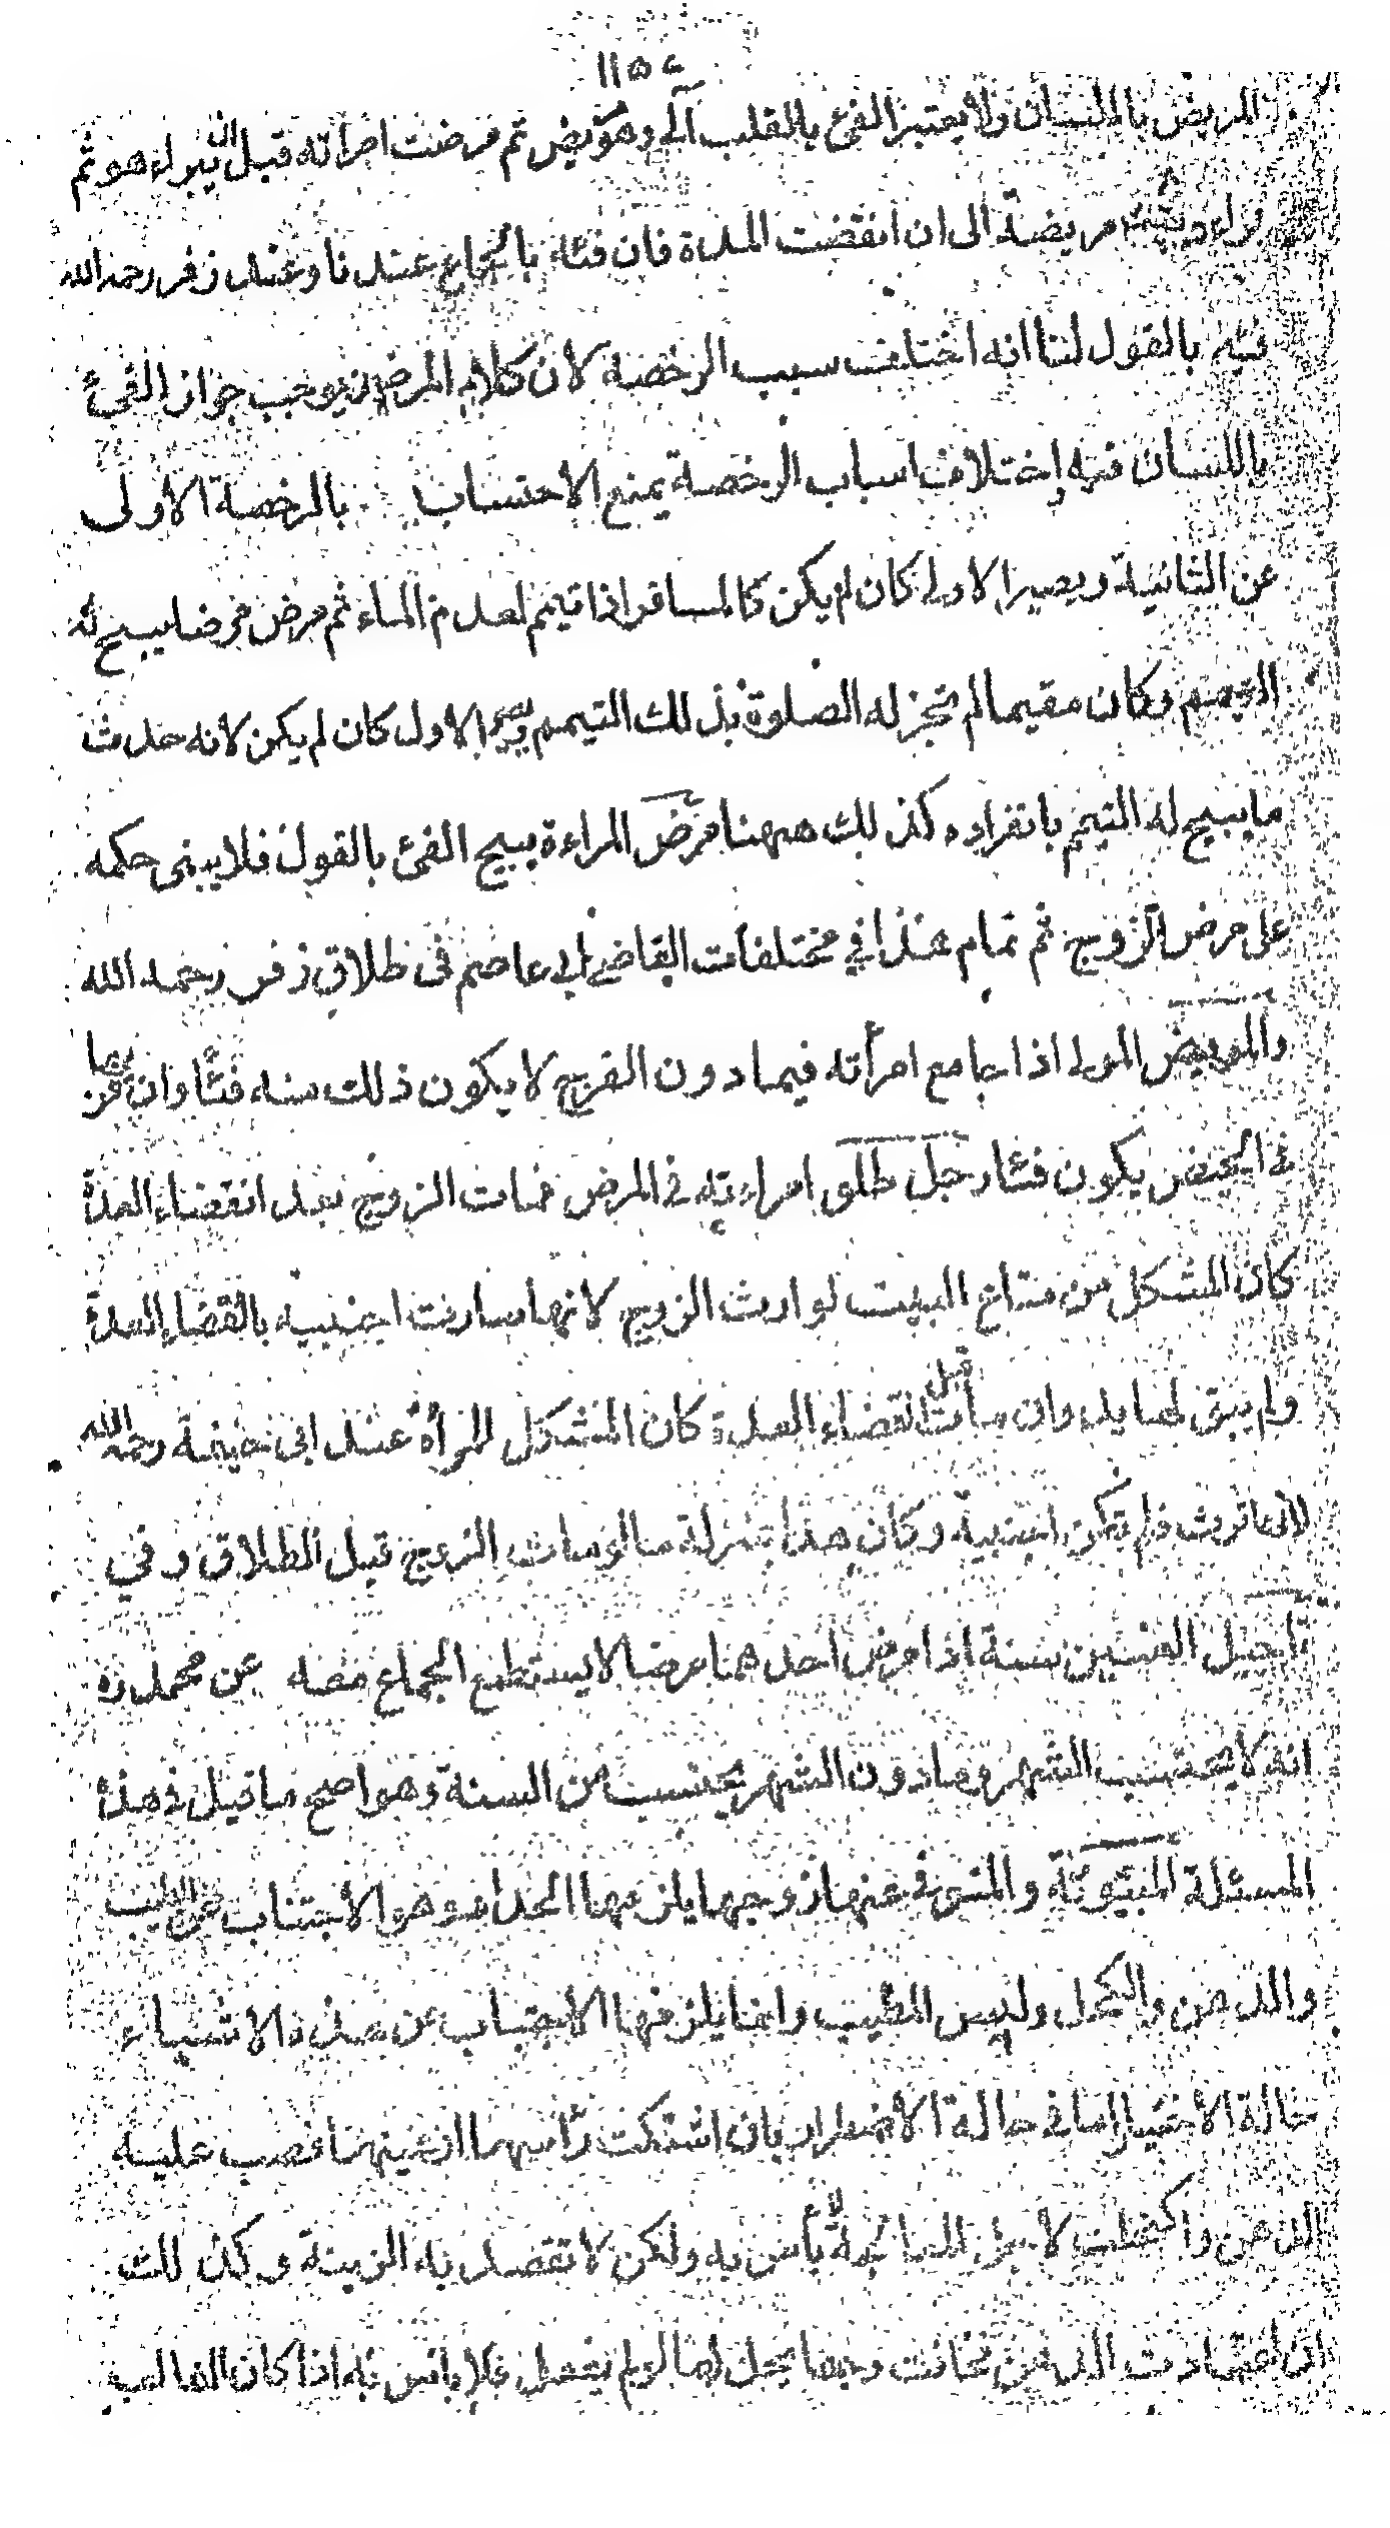 ١١٥٧
المريض باللسان ولا يعتبر الفئ بالقلب آلى وهو مريض ثم مرضت امرأته قبل ان يبراء هو ثم
مريضة الى ان انقضت المدة فان فئاه بالجماع عندنا وعند زفر رحمه الله
فيه بالقول لنا انه اختلف سبب الرخصة لان كلام المرضين يوجب جواز الفئ
باللسان فيه إختلاف اسباب الرخصة يمنع الاحتساب بالرخصة الاولى
عن الثانية ويصير الاولى كان لم يكن كالمسافر اذا تيمم لعدم الماء ثم مرض مرضا يبيح له
التيمم وكان مقيما لم تجز له الصلوة بذلك التيمم ويصير الاول كان لم يكن لانه حدث
ما يبيح له التيمم بانفراده كذلك ههنا مرض المراءة يبيح الفئ بالقول فلا يبنى حكمه
على مرض الزوج ثم تمام هذا في مختلفات القاضي ابى عاصم فى طلاق زفر رحمه الله
والمريض المولى اذا جامع امرأته فيما دون الفرج لا يكون ذلك منه فئا وان قربها
فى الحيض يكون فئا رجل طلق امراءته فى المرض فمات الزوج بعد انقضاء العدة
كان المشكل من متاع البيت لوارث الزوج لانها صارت اجنبيه بانقضاء العدة
ولم يبق لها يد وان مات قبل انقضاء العدة كان المشكل للمرأة عند ابى حنيفة رحمه الله
لانها ترث فلم تكن اجنبية وكان هذا بمنزلة ما لو مات الزوج قبل الطلاق وفي
تاجيل العنين سنة اذا مرض احدهما مرضا لا يستطيع الجماع معه عن محمد ره
انه لا يحتسب الشهر وما دون الشهر يحتسب من السنة وهو اصح ما قيل فى هذه
المسئلة المبتوتة والمتوفى عنها زوجها يلزمها الحداد وهو الاجتناب عن الطيب
والدهن والكحل ولبس المطيب وانما يلزمها الاجتناب عن هذه الاشياء
حالة الاختيار اما فى حالة الاضطرار بان اشتكت رأسها او عينها فصب عليه
الدهن واكتحلت لاجل الدا فلا بأس به ولكن لا تقصد به الزينة وكذلك
ان اعتادت الدهن فخافت وجعا يحل لها لو لم تفعل فلا باس به اذا كان الغالب